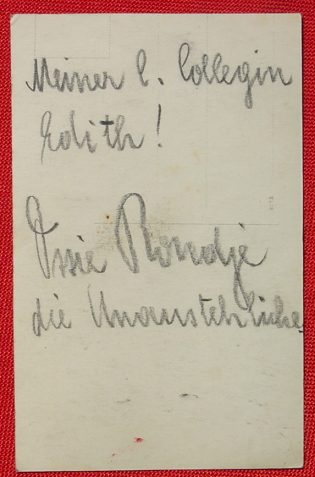 Meiner l. Collegin
Edith!
Ossie
die Unausstehliche